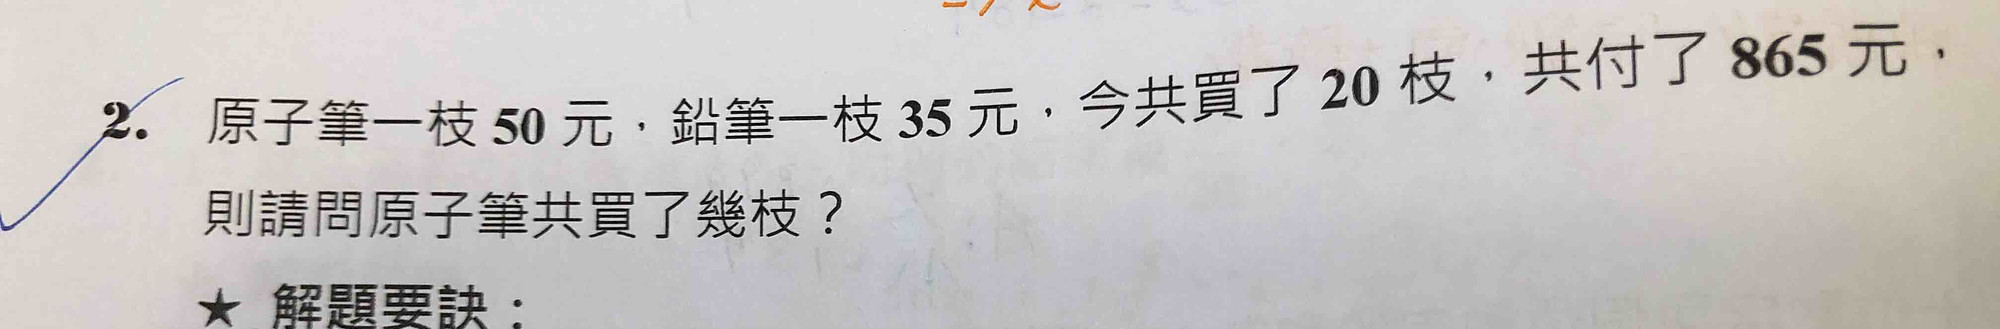 2. 原子筆一枝 50 元，鉛筆一枝 35 元，今共買了 20 枝，共付了 865 元，
則請問原子筆共買了幾枝？
★ 解題要訣：